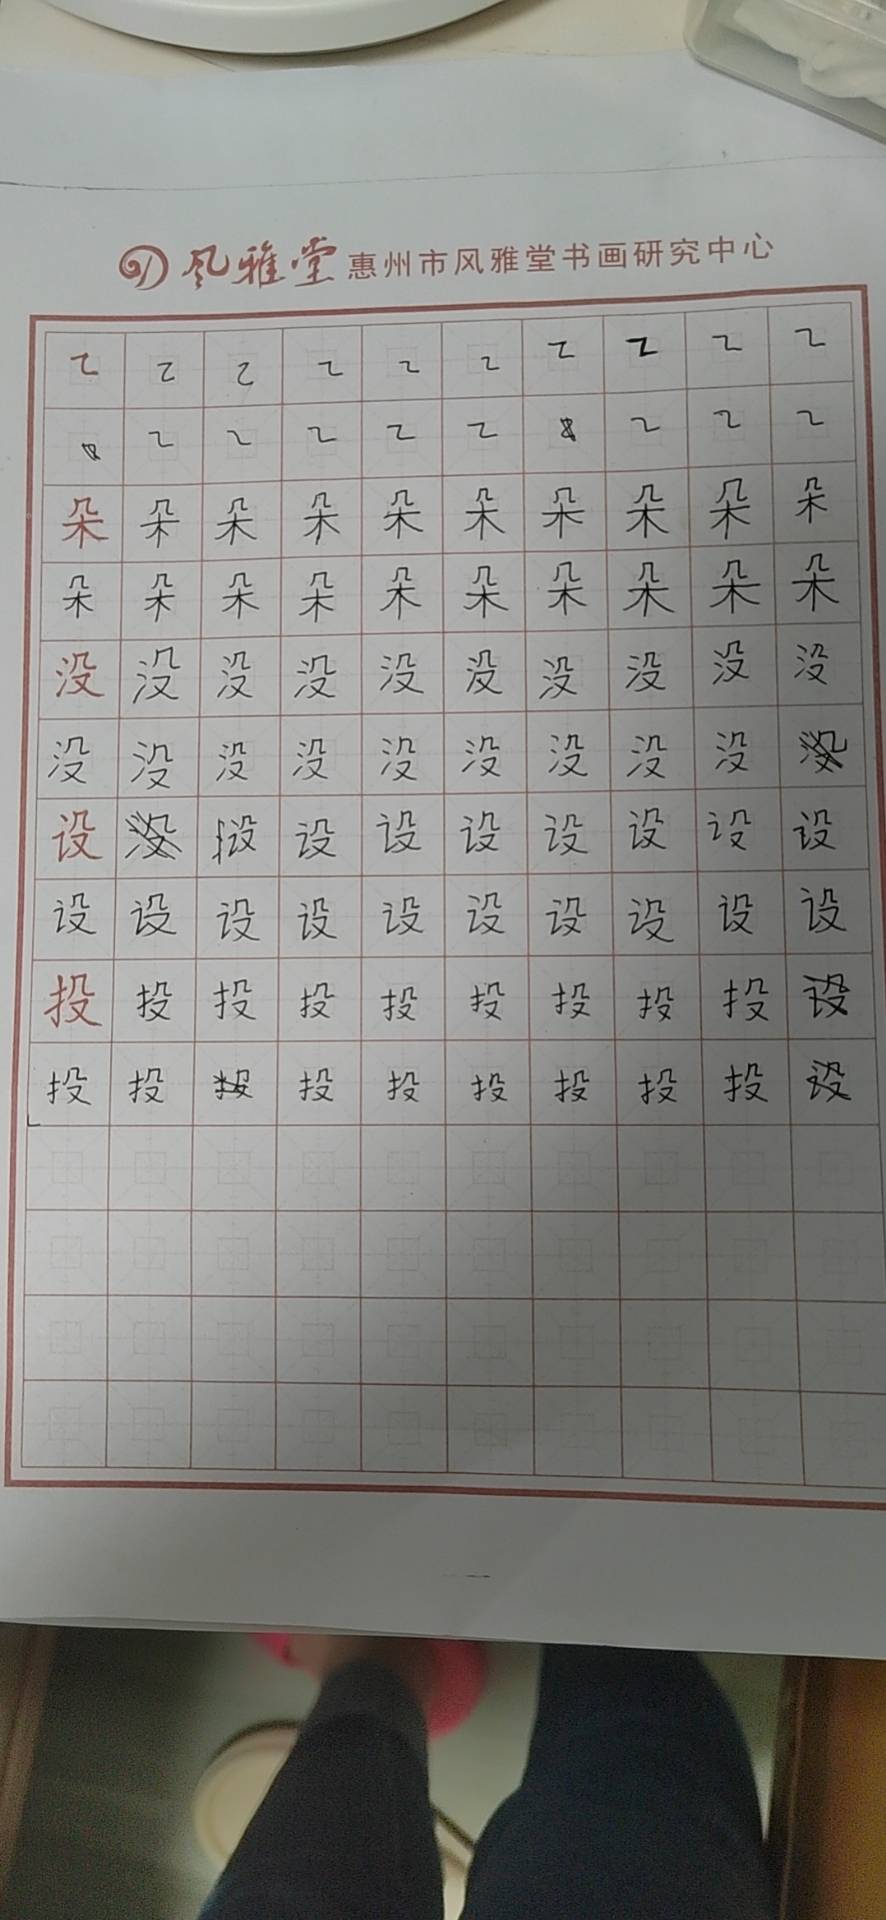 风雅堂 惠州市风雅堂书画研究中心
朵朵朵朵朵朵朵朵朵朵
朵朵朵朵朵朵朵朵朵朵
没没没没没没没没没没
没没没没没没没没没
设设设设设设设设
设设设设设设设设设设
投投投投投投投投投设
投投投投投投投投设